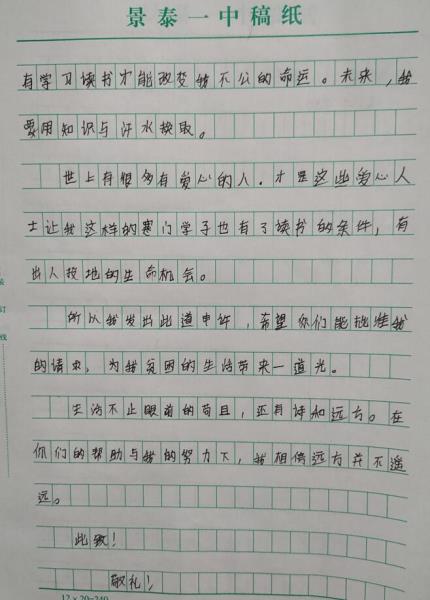 景泰一中稿纸
有学习读书才能改变我不公的命运。未来,我
要用知识与汗水换取。
世上有很多有爱心的人.才是这些爱心人
士让我这样的寒门学子也有了读书的条件,有
出人投地的生命机会。
所以我发出此道申许,希望你们能批准我
的请求,为我贫困的生活带来一道光。
生活不止眼前的苟且,还有诗和远方。在
你们的帮助与我的努力下,我相信远方并不遥
远。
此致!
敬礼!
12×20=240
订
线